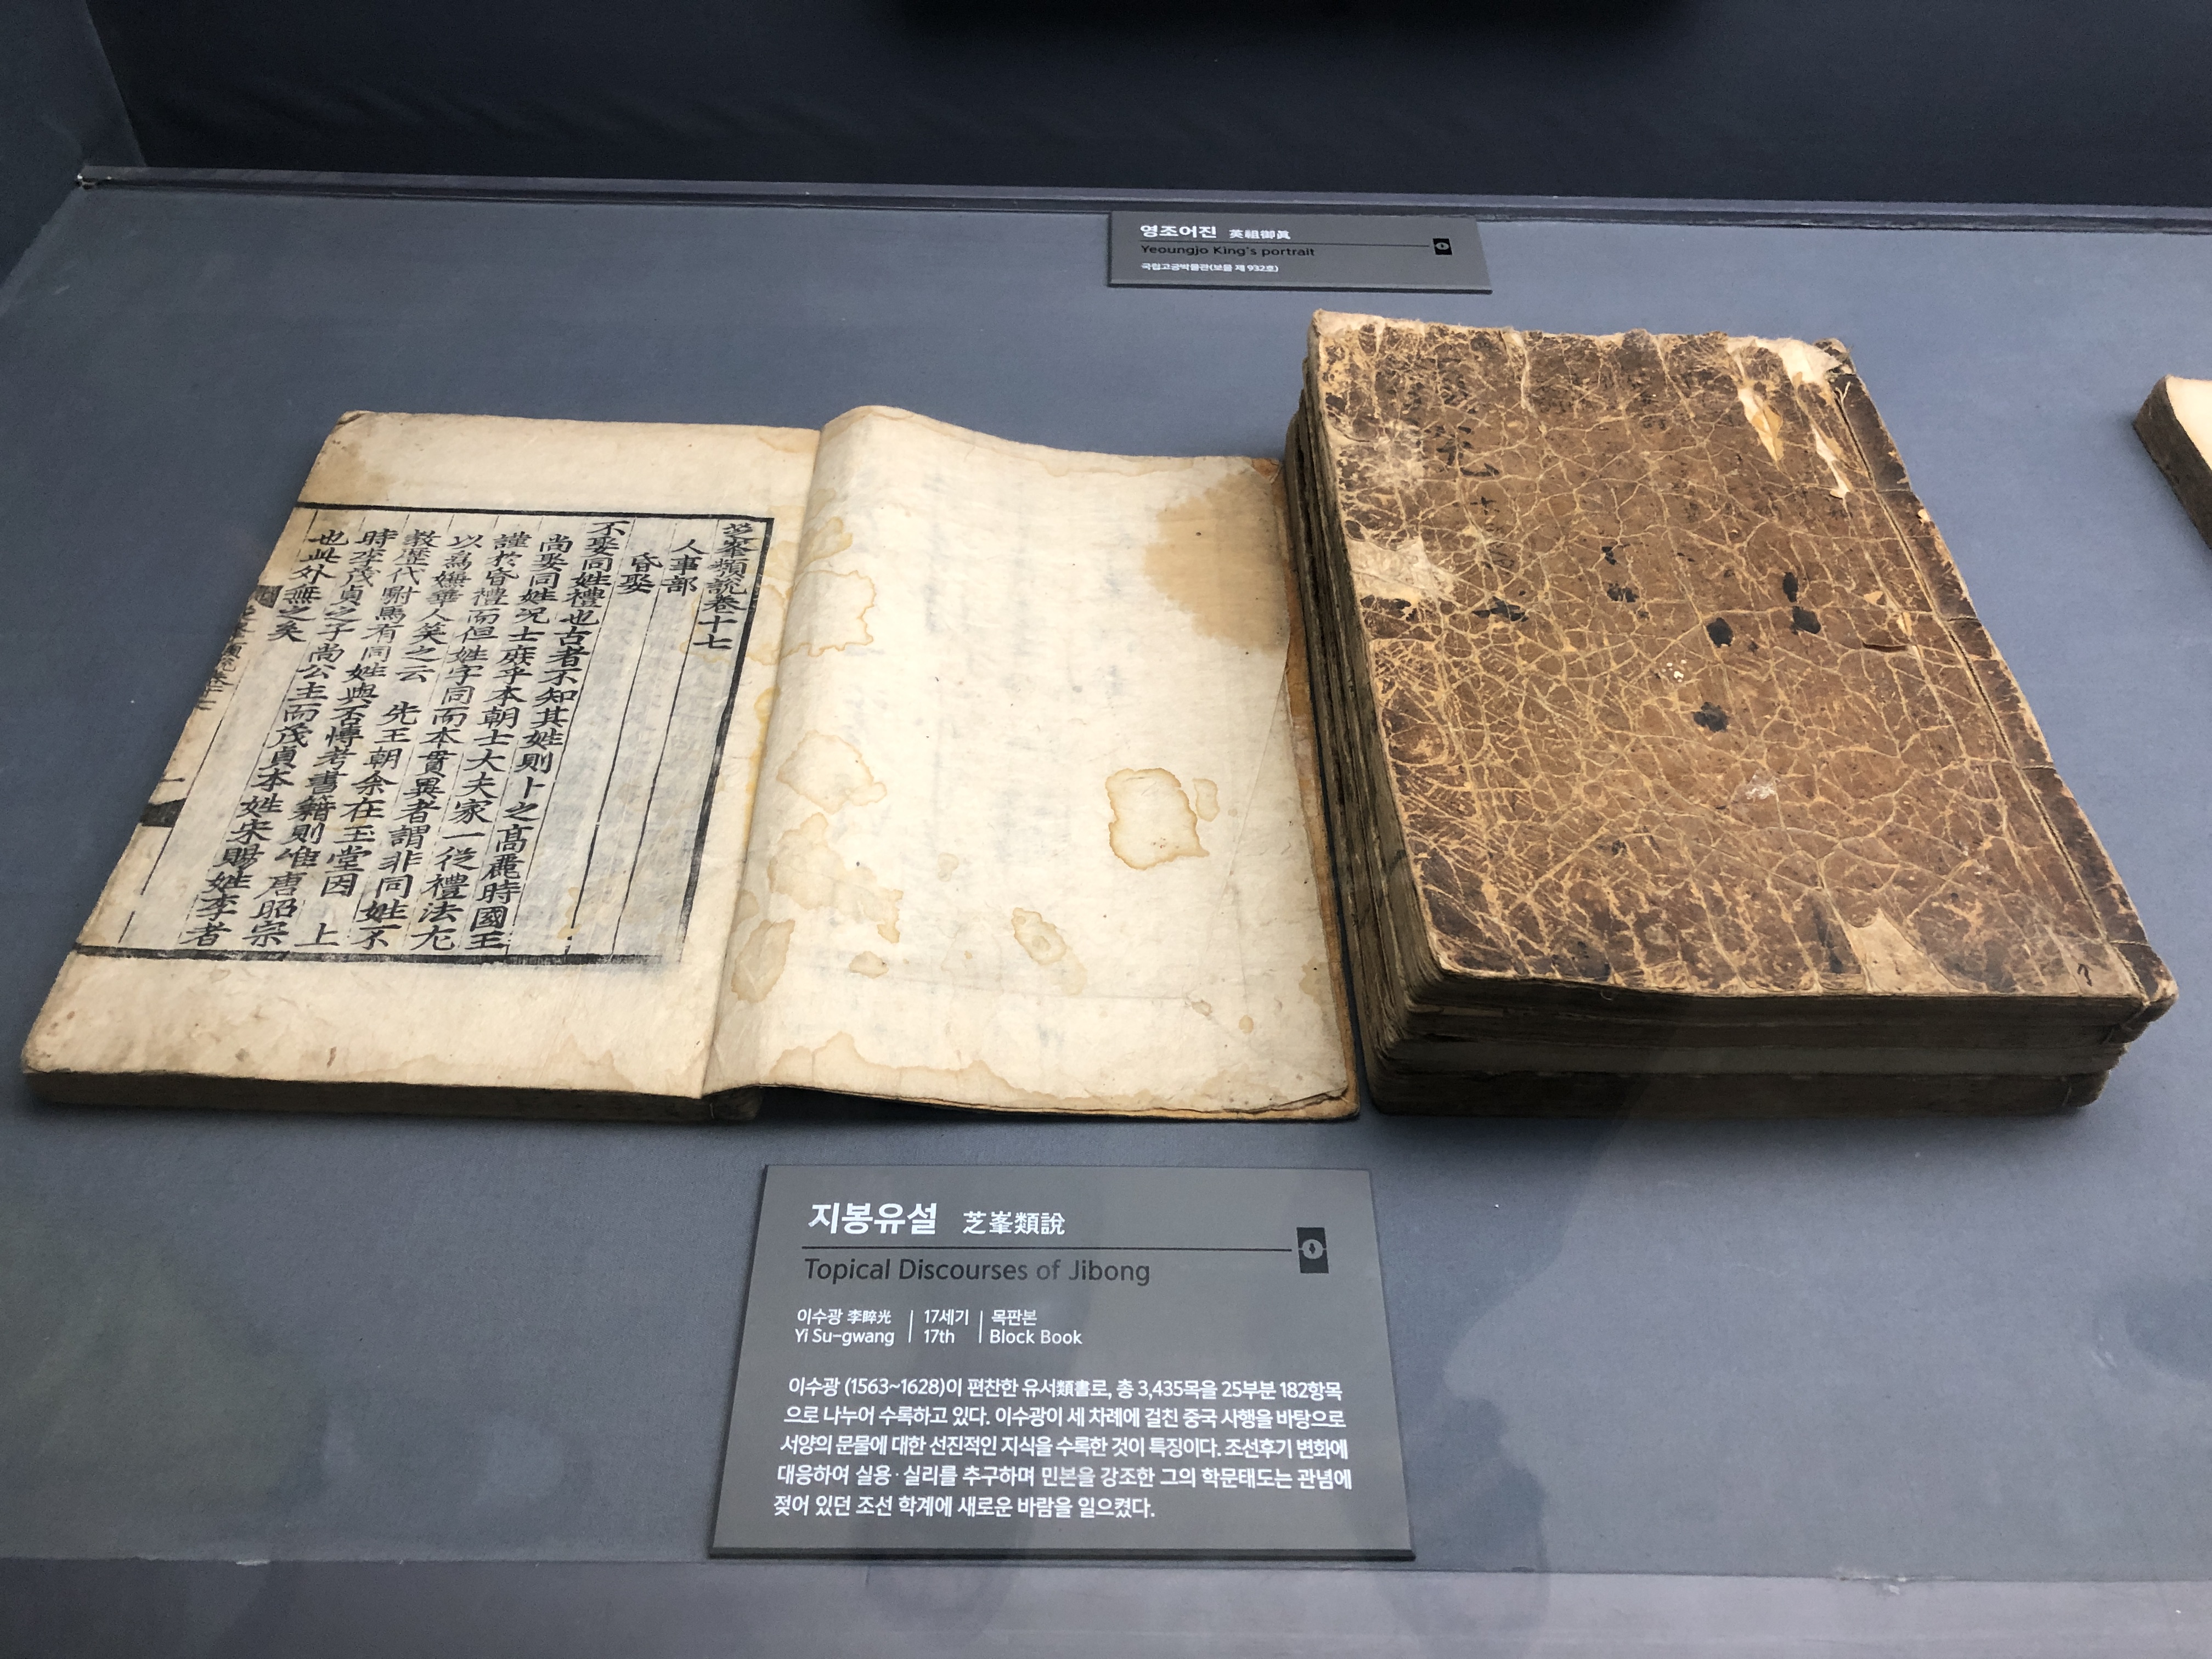 영조어진 英祖御眞
Yeoungjo King's portrait
국립고궁박물관(보물 제 932호)
芝峯類說卷十七
人事部
昏娶
不娶同姓禮也古者不知其姓則卜之高麗時國王
尚娶同姓况士庶乎本朝士大夫家一從禮法尤
謹於昏禮而但姓字同而本貫異者謂非同姓不
以爲嫌華人笑之云 先王朝余在玉堂因 上
敎歷代駙馬有同姓與否博考書籍則唯唐昭宗
時李茂貞之子尚公主而茂貞本姓宋賜姓李者
也此外無之矣
지봉유설 芝峯類說
Topical Discourses of Jibong
이수광 李睟光 | 17세기 | 목판본
Yi Su-gwang | 17th | Block Book
이수광 (1563~1628)이 편찬한 유서類書로, 총 3,435목을 25부분 182항목
으로 나누어 수록하고 있다. 이수광이 세 차례에 걸친 중국 사행을 바탕으로
서양의 문물에 대한 선진적인 지식을 수록한 것이 특징이다. 조선후기 변화에
대응하여 실용·실리를 추구하며 민본을 강조한 그의 학문태도는 관념에
젖어 있던 조선 학계에 새로운 바람을 일으켰다.